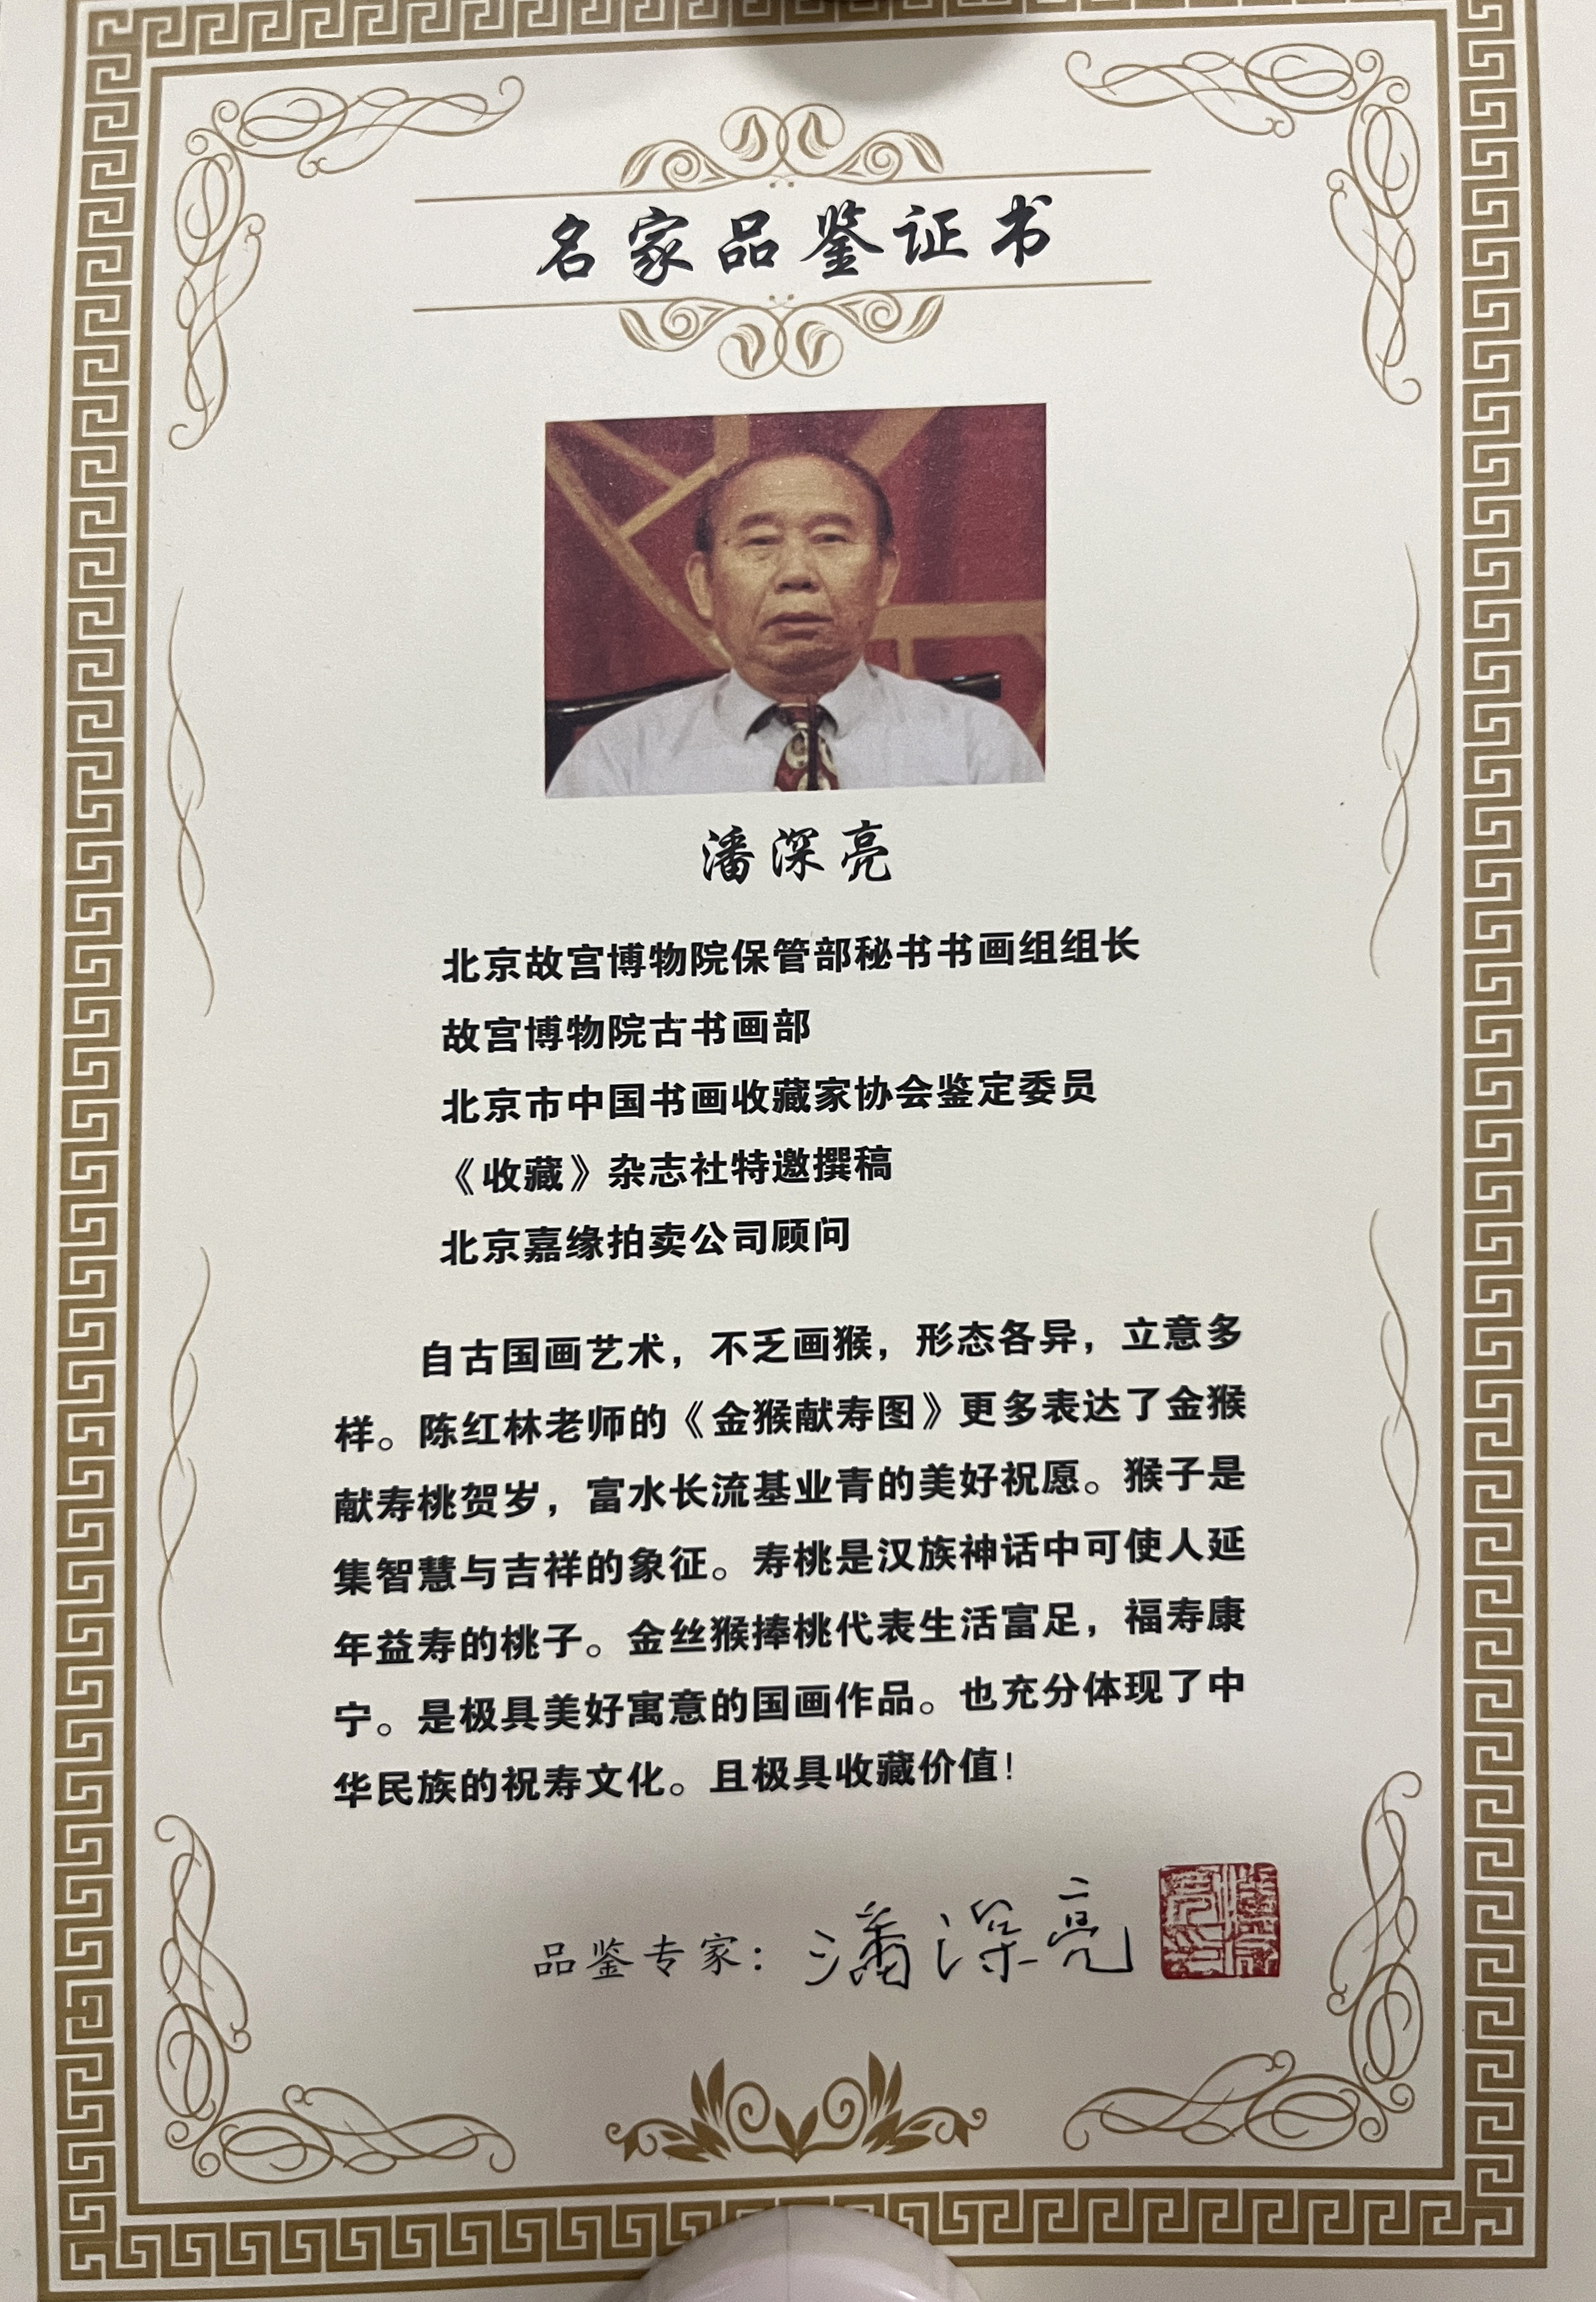 名家品鉴证书
潘深亮
北京故宫博物院保管部秘书书画组组长
故宫博物院古书画部
北京市中国书画收藏家协会鉴定委员
《收藏》杂志社特邀撰稿
北京嘉缘拍卖公司顾问
自古国画艺术，不乏画猴，形态各异，立意多
样。陈红林老师的《金猴献寿图》更多表达了金猴
献寿桃贺岁，富水长流基业青的美好祝愿。猴子是
集智慧与吉祥的象征。寿桃是汉族神话中可使人延
年益寿的桃子。金丝猴捧桃代表生活富足，福寿康
宁。是极具美好寓意的国画作品。也充分体现了中
华民族的祝寿文化。且极具收藏价值！
品鉴专家：潘深亮